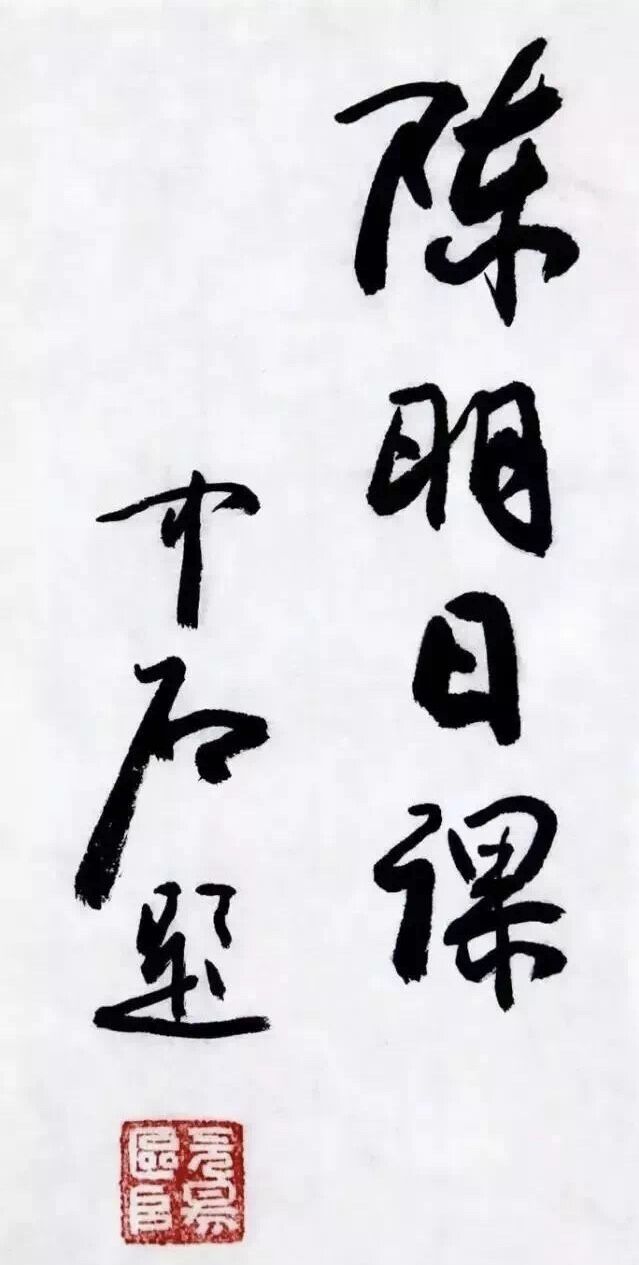 陈明日课
中石题